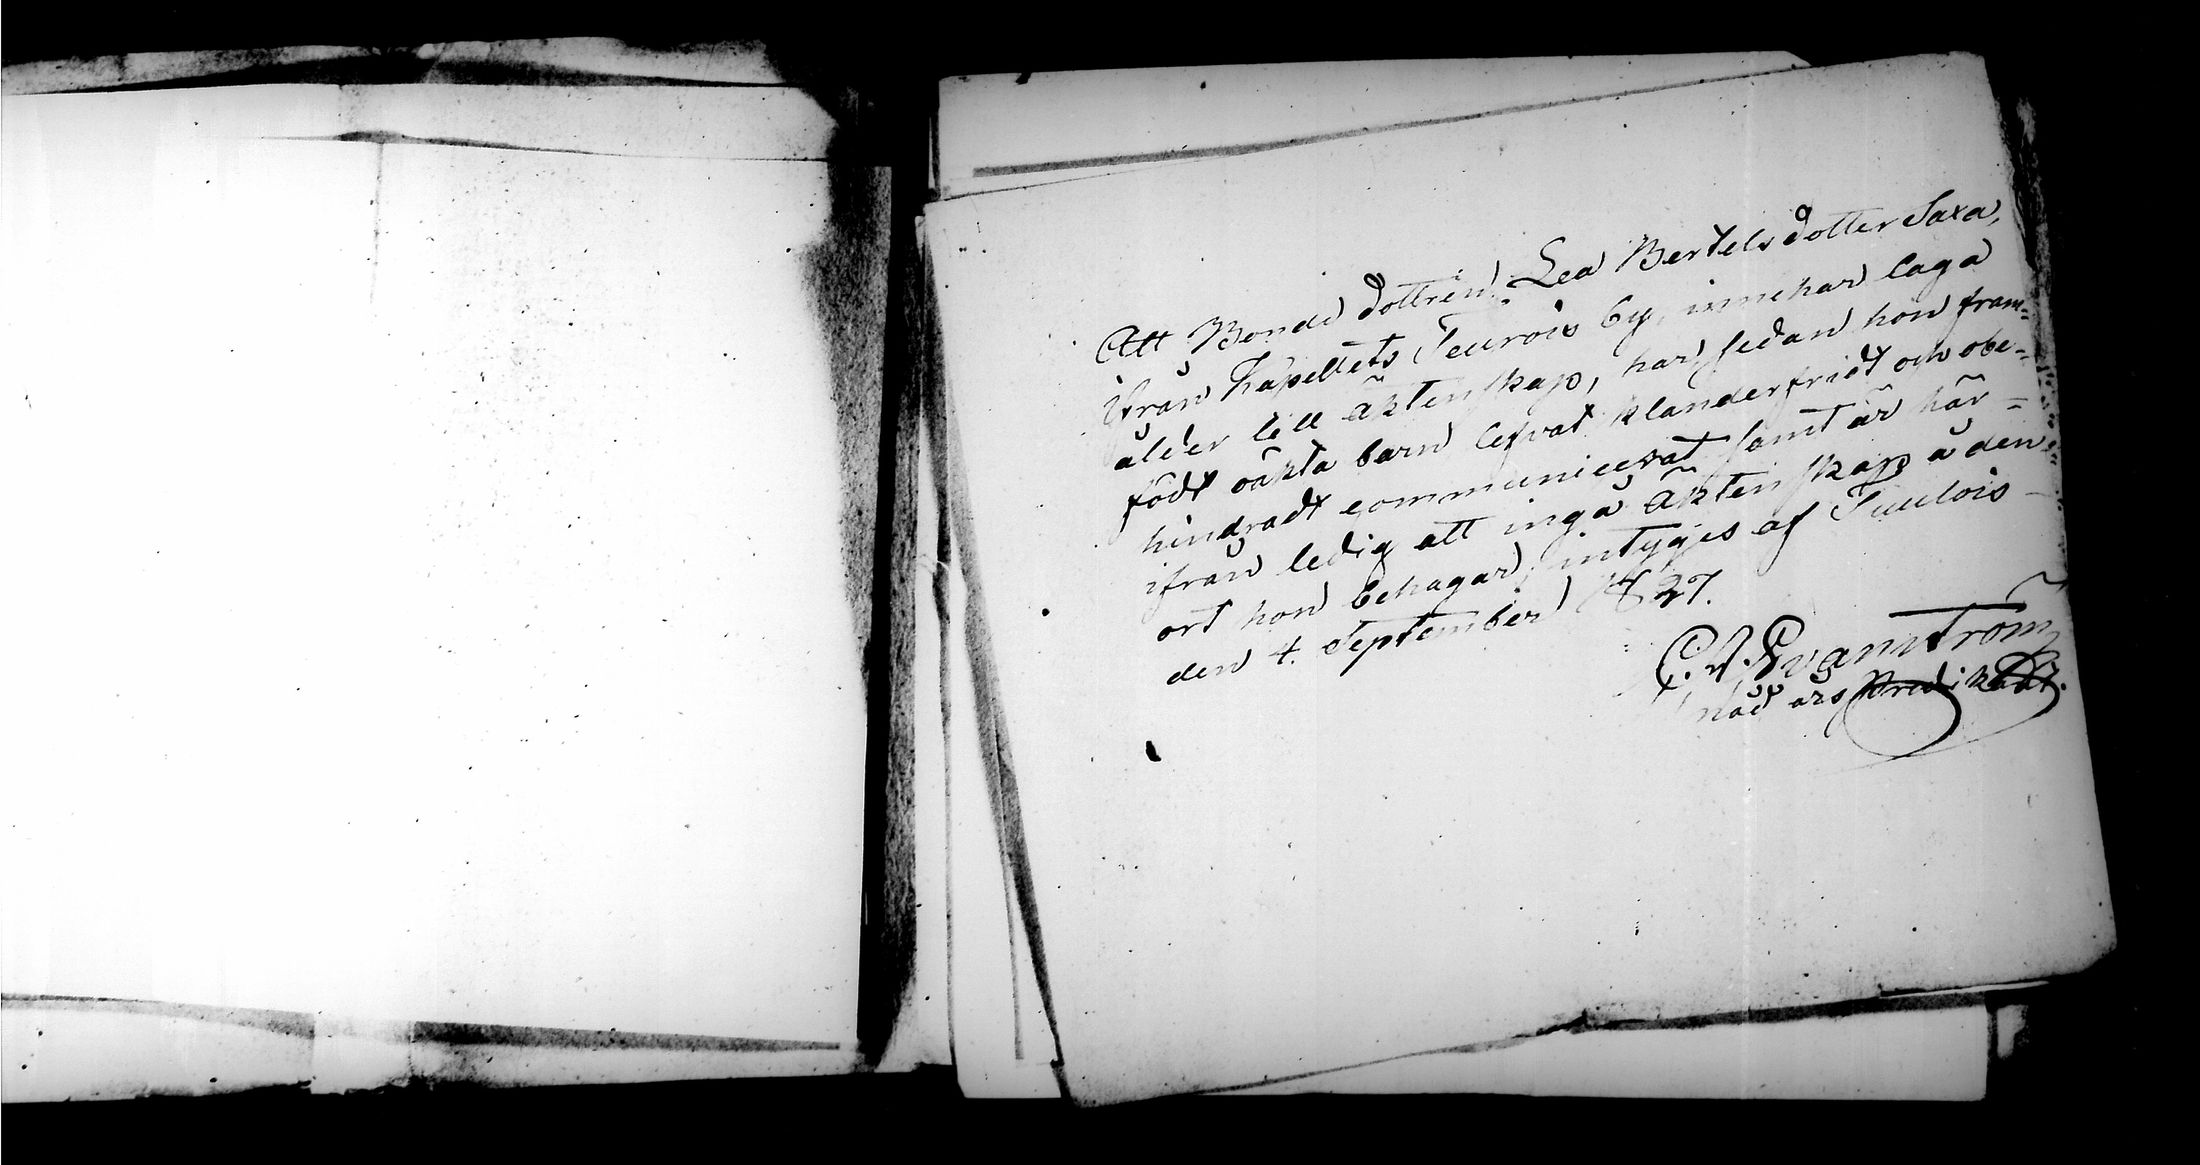 Att Bonde dottren Lea Bertelsdotter Saxa,
ifrån Kapellets Teurois by, innehar laga
ålder till äktenskap, har sedan hon fram=
födt oäkta barn lefvat klanderfritt och obe=
hindradt communicerat samt är här=
ifrån ledig att ingå äktenskap å den
ort hon behagar, intygas af Tuulois
den 4. September 1827.
C. A. Qvanström
nåd års Predikant.